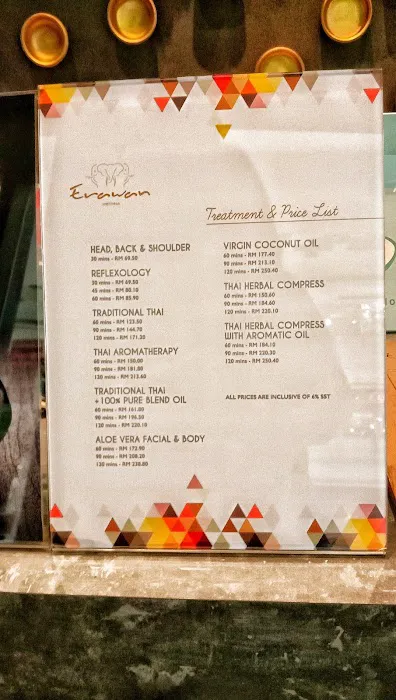 Erawan
Treatment & Price List
HEAD, BACK & SHOULDER
30 mins - RM 69.50
REFLEXOLOGY
30 mins - RM 69.50
45 mins - RM 80.10
60 mins - RM 85.90
TRADITIONAL THAI
60 mins - RM 123.50
90 mins - RM 144.70
120 mins - RM 171.20
THAI AROMATHERAPY
60 mins - RM 150.00
90 mins - RM 181.00
120 mins - RM 213.60
TRADITIONAL THAI
+ 100% PURE BLEND OIL
60 mins - RM 161.00
90 mins - RM 196.30
120 mins - RM 220.10
ALOE VERA FACIAL & BODY
60 mins - RM 172.90
90 mins - RM 208.20
120 mins - RM 238.80
VIRGIN COCONUT OIL
60 mins - RM 177.40
90 mins - RM 213.10
120 mins - RM 250.40
THAI HERBAL COMPRESS
60 mins - RM 150.60
90 mins - RM 184.60
120 mins - RM 220.10
THAI HERBAL COMPRESS
WITH AROMATIC OIL
60 mins - RM 184.10
90 mins - RM 220.30
120 mins - RM 250.40
ALL PRICES ARE INCLUSIVE OF 6% SST